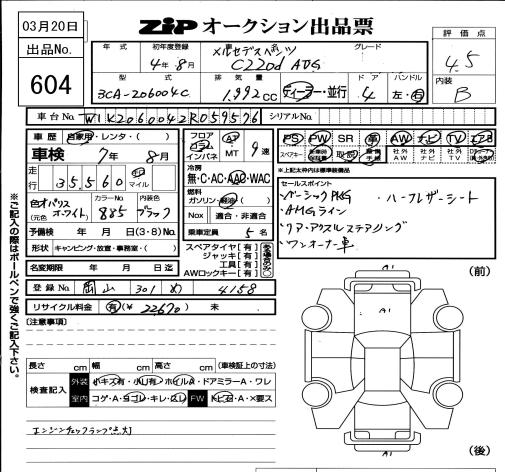 03月20日
ZIP オークション出品票
出品No.
604
評価点
4.5
内装
B
年式 初年度登録 車名 グレード
4年8月 メルセデスベンツ C220d AVG
型式 排気量 ドア ハンドル
3CA-206004C 1,992CC ディーラー・並行 4 左・右
車台No. W1K2060042R059576 シリアルNo.
車歴 自家用・レンタ・( )
車検 7年8月
走行 35,560 km マイル
色 オパリスホワイト (元色 ) カラーNo. 885 内装色 ブラック
予備検 年 月 日(3・8)No.
形状 キャンピング・放置・事務室・( )
名変期限 年 月 日迄
フロア コラム インパネ AT MT 9速
冷房 無・C・AC・AAC・WAC
燃料 ガソリン・軽油( )
Nox 適合・非適合
乗車定員 5名
スペアタイヤ[有]
ジャッキ[有]
工具[有]
AWロックキー[有]
PS PW SR 革 AW ナビ TV エアB
スペアキー 取説 社外AW 社外ナビ 社外TV
※上記太枠内は標準装備品
セールスポイント
・ベーシックPKG ・ハーフレザーシート
・AMGライン
・リアアクスルステアリング
・ワンオーナー車
登録No. 岡山 301 め 4158
リサイクル料金 有(¥ 22670 ) 未
[注意事項]
長さ cm 幅 cm 高さ cm (車検証上の寸法)
検査記入 外装 小キズ有・小凹有・ホイルA・ドアミラーA・ワレ
室内 コゲ・A・ヨゴレ・キレ・スレ FW トビ石・A・×要ス
エンジンチェックランプ点灯
※ご記入の際はボールペンで強くご記入下さい。
(前)
A1
A1
A1
(後)